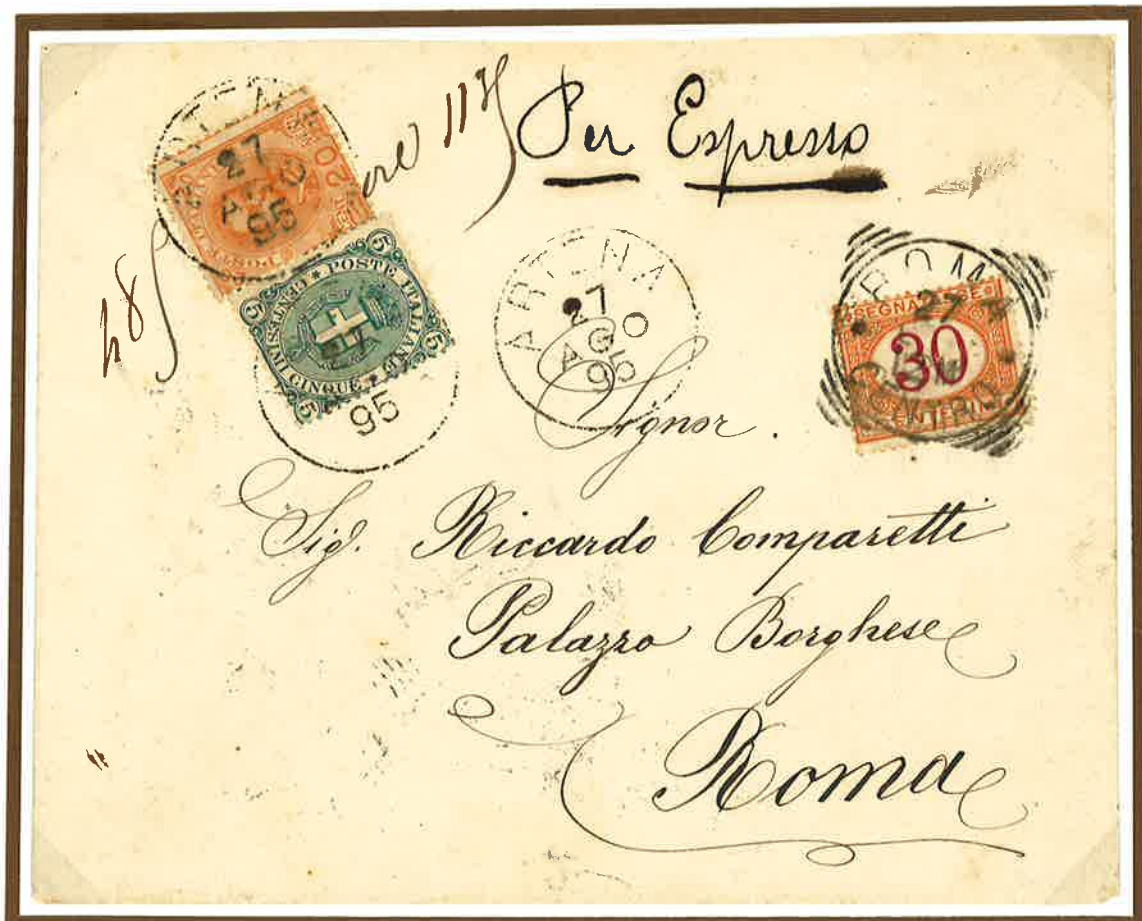 Per Espresso
ore 11
ARTENA
27
AGO
95
27
AGO
95
20
POSTE ITALIANE * CENTESIMI CINQUE *
5 5 5 5
95
ARTENA
27
AGO
95
ROMA
27
SEGNATASSE
30
CENTESIMI
Signor.
Sig. Riccardo Comparetti
Palazzo Borghese
Roma